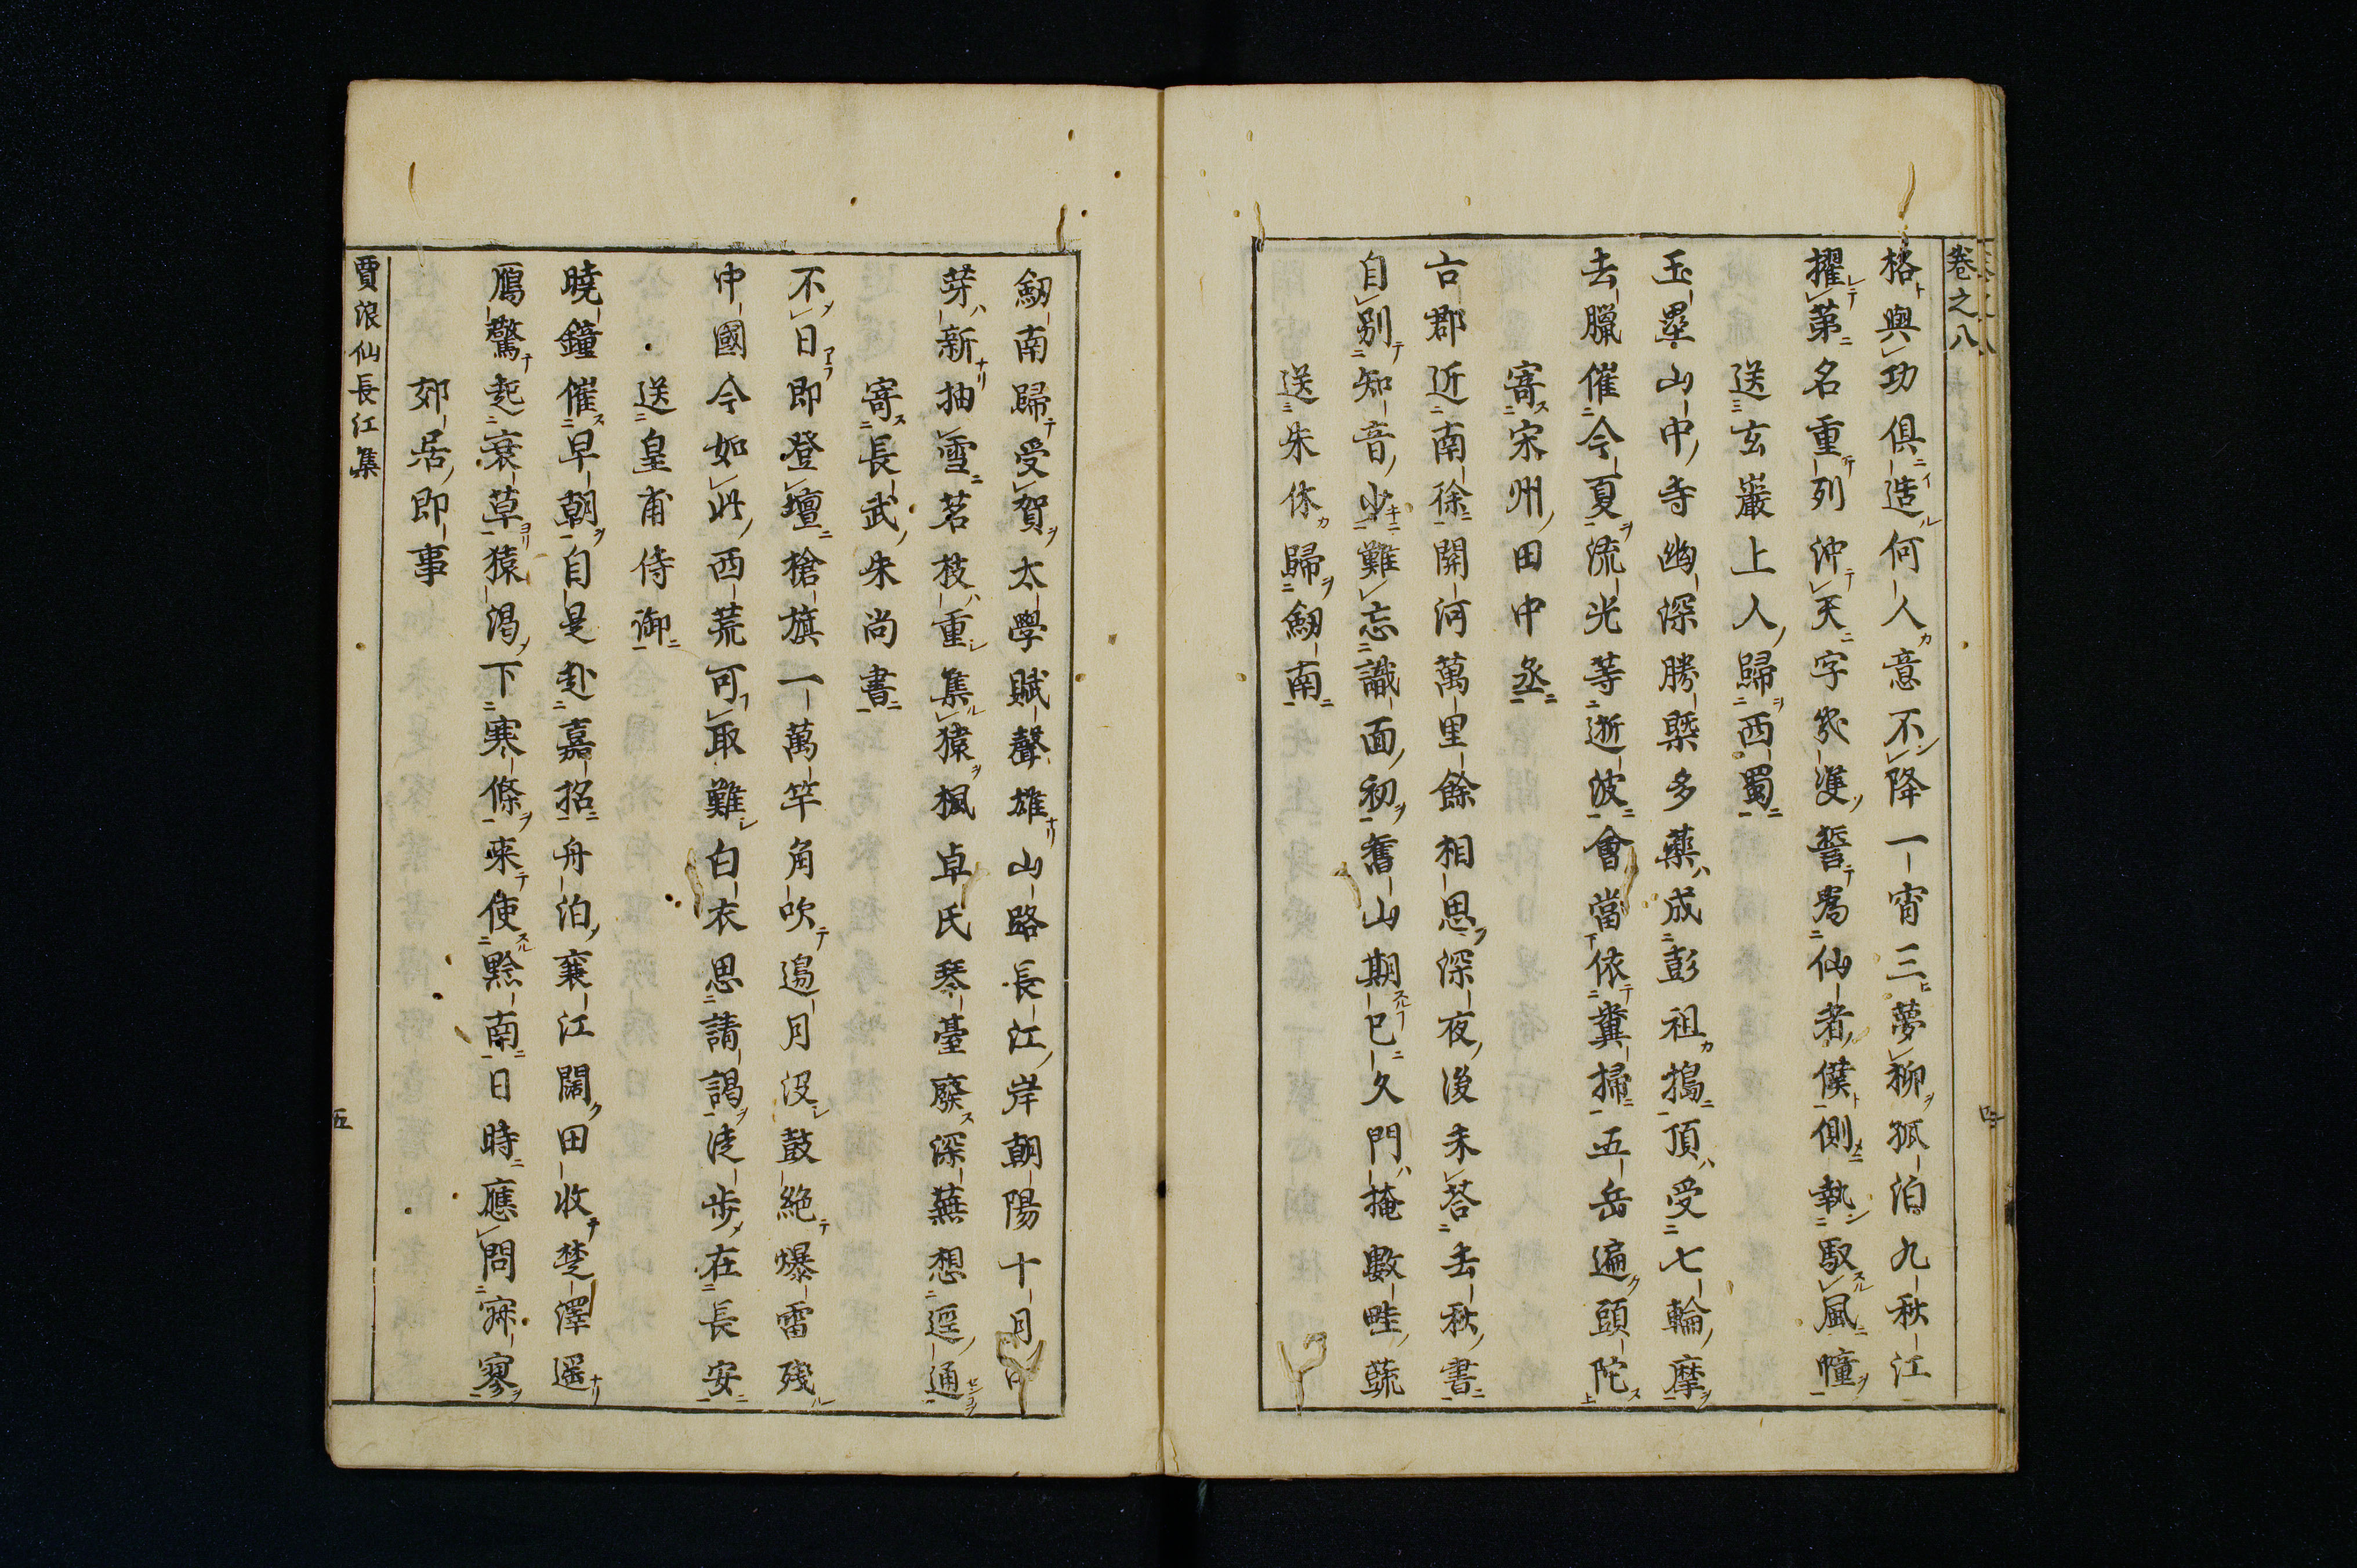 卷之八
格與功俱造何人意不降一宵三夢柳孤泊九秋江
擢第名重列沖天字幾雙誓爲仙者僕側執馭風幢
送玄巖上人歸西蜀
玉壘山中寺幽深勝槩多藥成彭祖擣頂受七輪摩
去臘催今夏流光等逝波會當依糞掃五岳遍頭陀
寄宋州田中丞
古郡近南徐關河萬里餘相思深夜後未荅去秋書
自別知音少難忘識面初舊山期已久門掩數畦蔬
送朱休歸劒南
劒南歸受賀太學賦聲雄山路長江岸朝陽十月中
芽新抽雪茗枝重集猿楓卓氏琴臺廢深蕪想逕通
寄長武朱尚書
不日即登壇槍旗一萬竿角吹邉月没鼓絶爆雷殘
中國今如此西荒可取難白衣思請謁徒步在長安
送皇甫侍御
曉鐘催早朝自是赴嘉招舟泊襄江闊田收楚澤遥
鴈驚起衰草猿渴下寒條來使黔南日時應問寂寥
郊居即事
賈浪仙長江集
五